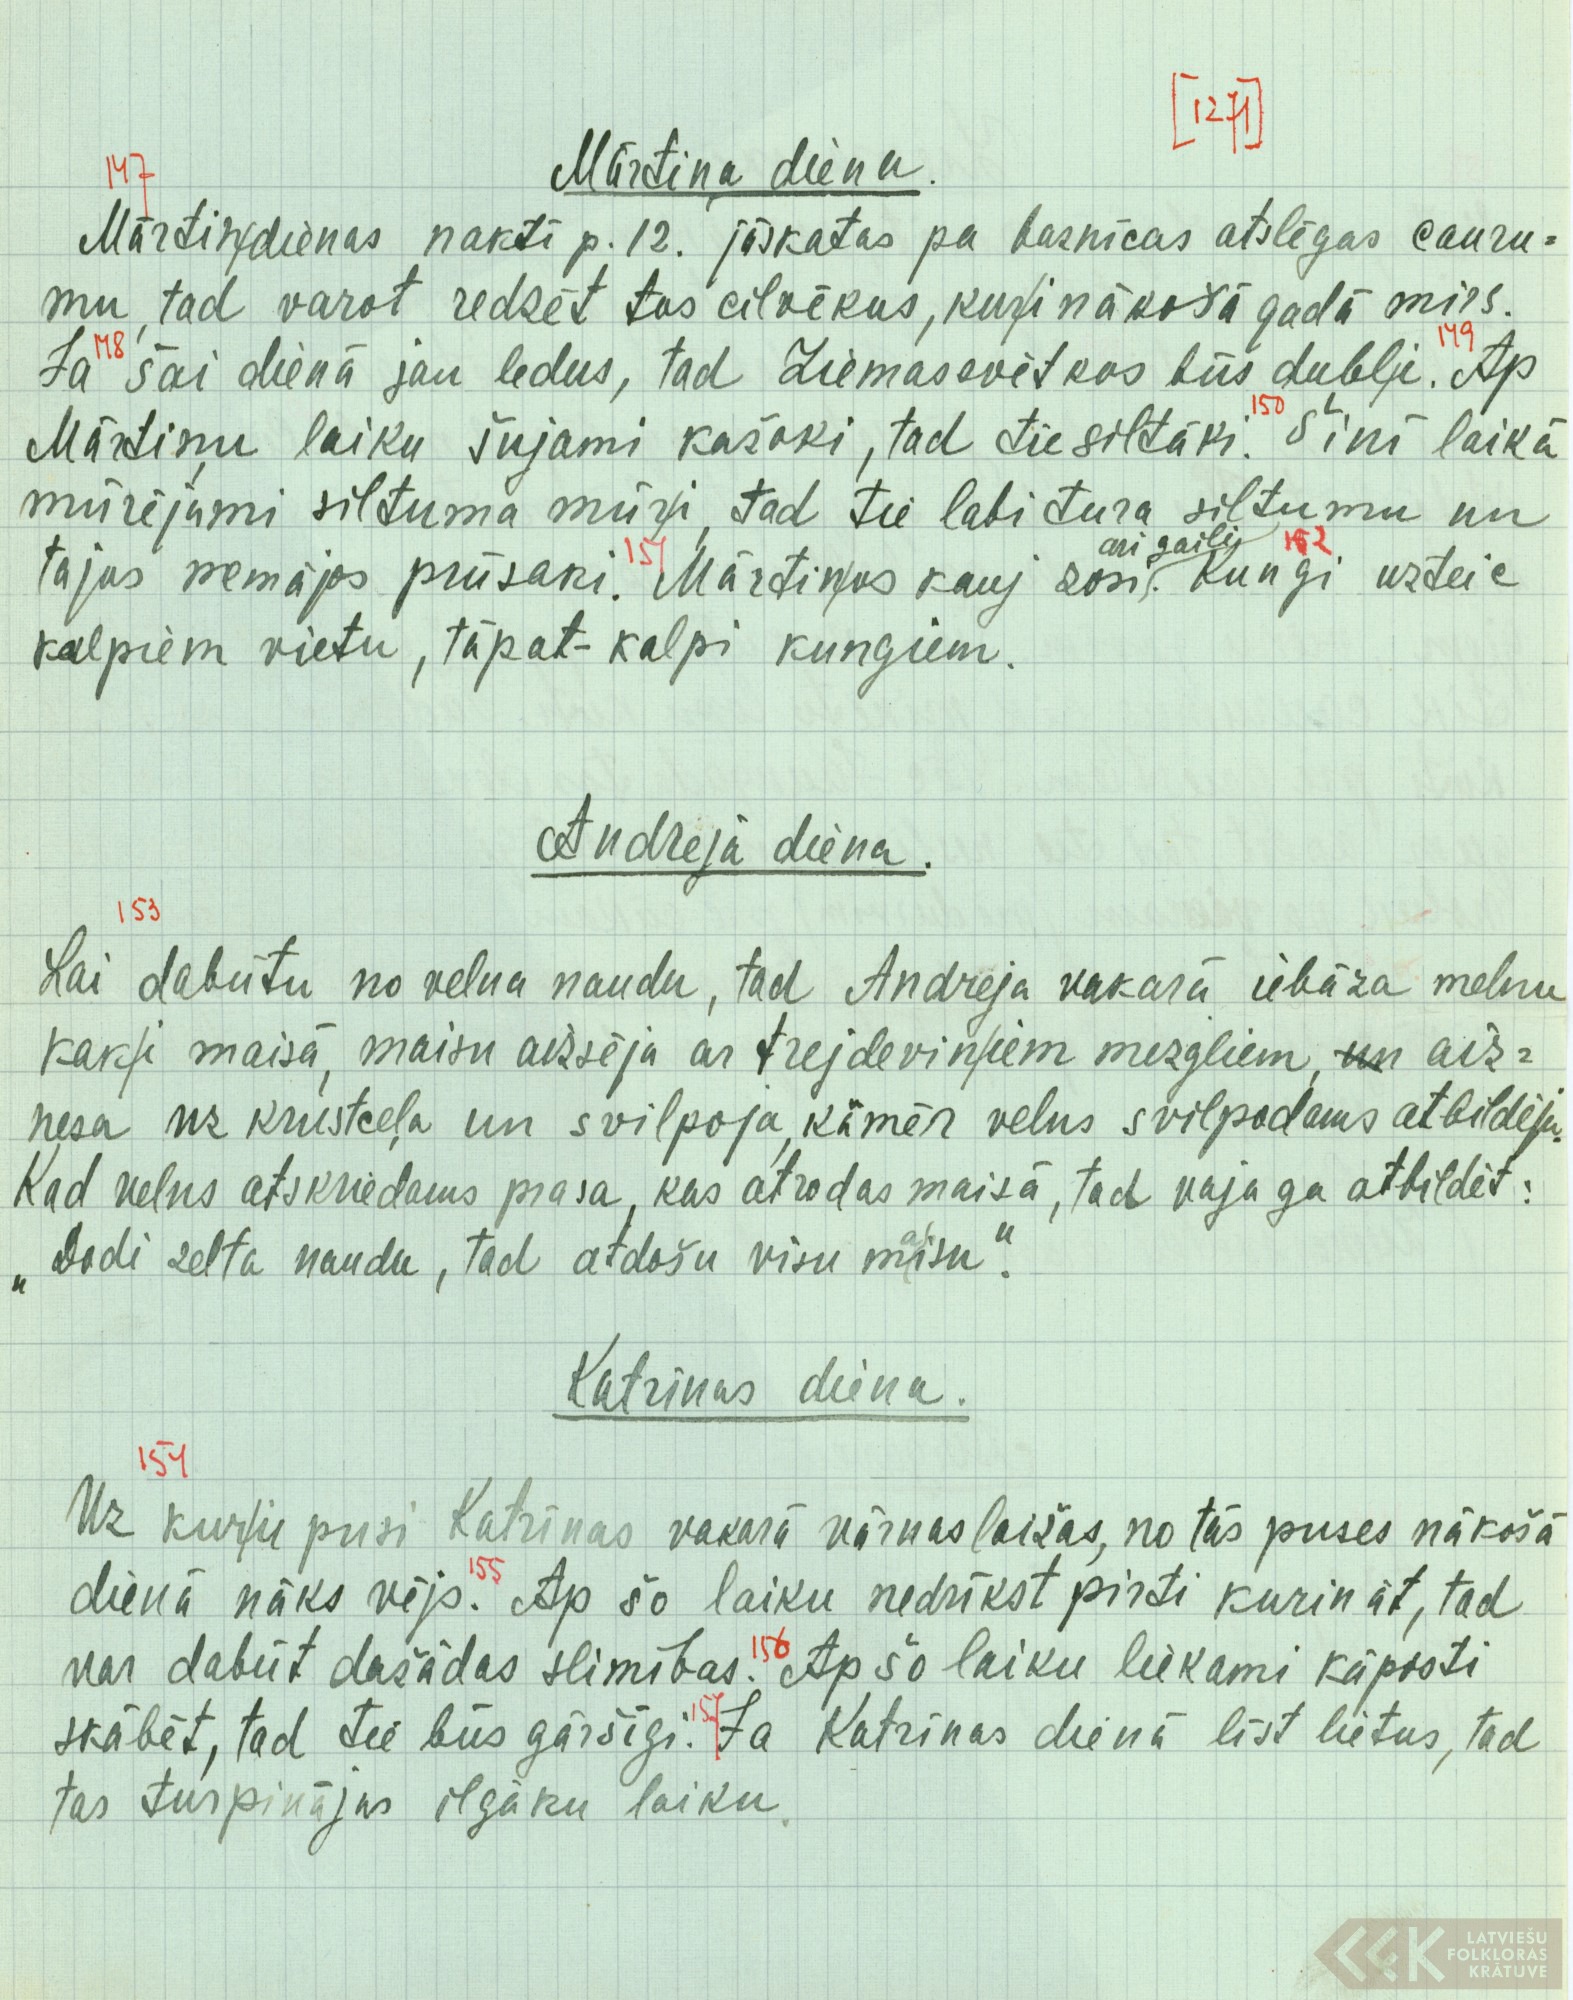 [1271]
Mārtiņa diena.
147
Mārtiņdienas naktī p. 12. jāskatas pa baznīcas atslēgas cauru=
mu, tad varot redzēt tos cilvēkus, kuŗi nākošā gadā mirs.
Ja 148 šai dienā jau ledus, tad Ziemassvētkos būs dubļi. 149 Ap
Mārtiņu laiku šujami kažoki, tad tie siltāki. 150 Šinī laikā
mūrējami siltuma mūŗi, tad tie labi tura siltumu un
ari gaili
tajos nemājos prūsaki. 151 Mārtiņos kauj zosi. 152 Kungi uzteic
kalpiem vietu, tāpat- kalpi kungiem.
Andrejā diena.
153
Lai dabūtu no velna naudu, tad Andreja vakarā iebāza melnu
kaķi maisā, maisu aizsēja ar trejdeviņiem mezgliem, un aiz=
nesa uz krustceļa un svilpoja, kāmēr velns svilpodams atbildēja.
Kad velns atskriedams prasa, kas atrodas maisā, tad vajaga atbildēt:
„Dodi zelta naudu, tad atdošu visu maisu".
Katrīnas diena.
154
Uz kuŗu pusi Katrīnas vakarā vārnas laižas, no tās puses nākošā
dienā nāks vējs. 155 Ap šo laiku nedrīkst pirti kurināt, tad
var dabūt dažādas slimības. 156 Ap šo laiku liekami kāposti
skābēt, tad tie būs gāršīgi. 157 Ja Katrīnas dienā līst lietus, tad
tas turpinājas ilgāku laiku.
LATVIEŠU
FOLKLORAS
KRĀTUVE